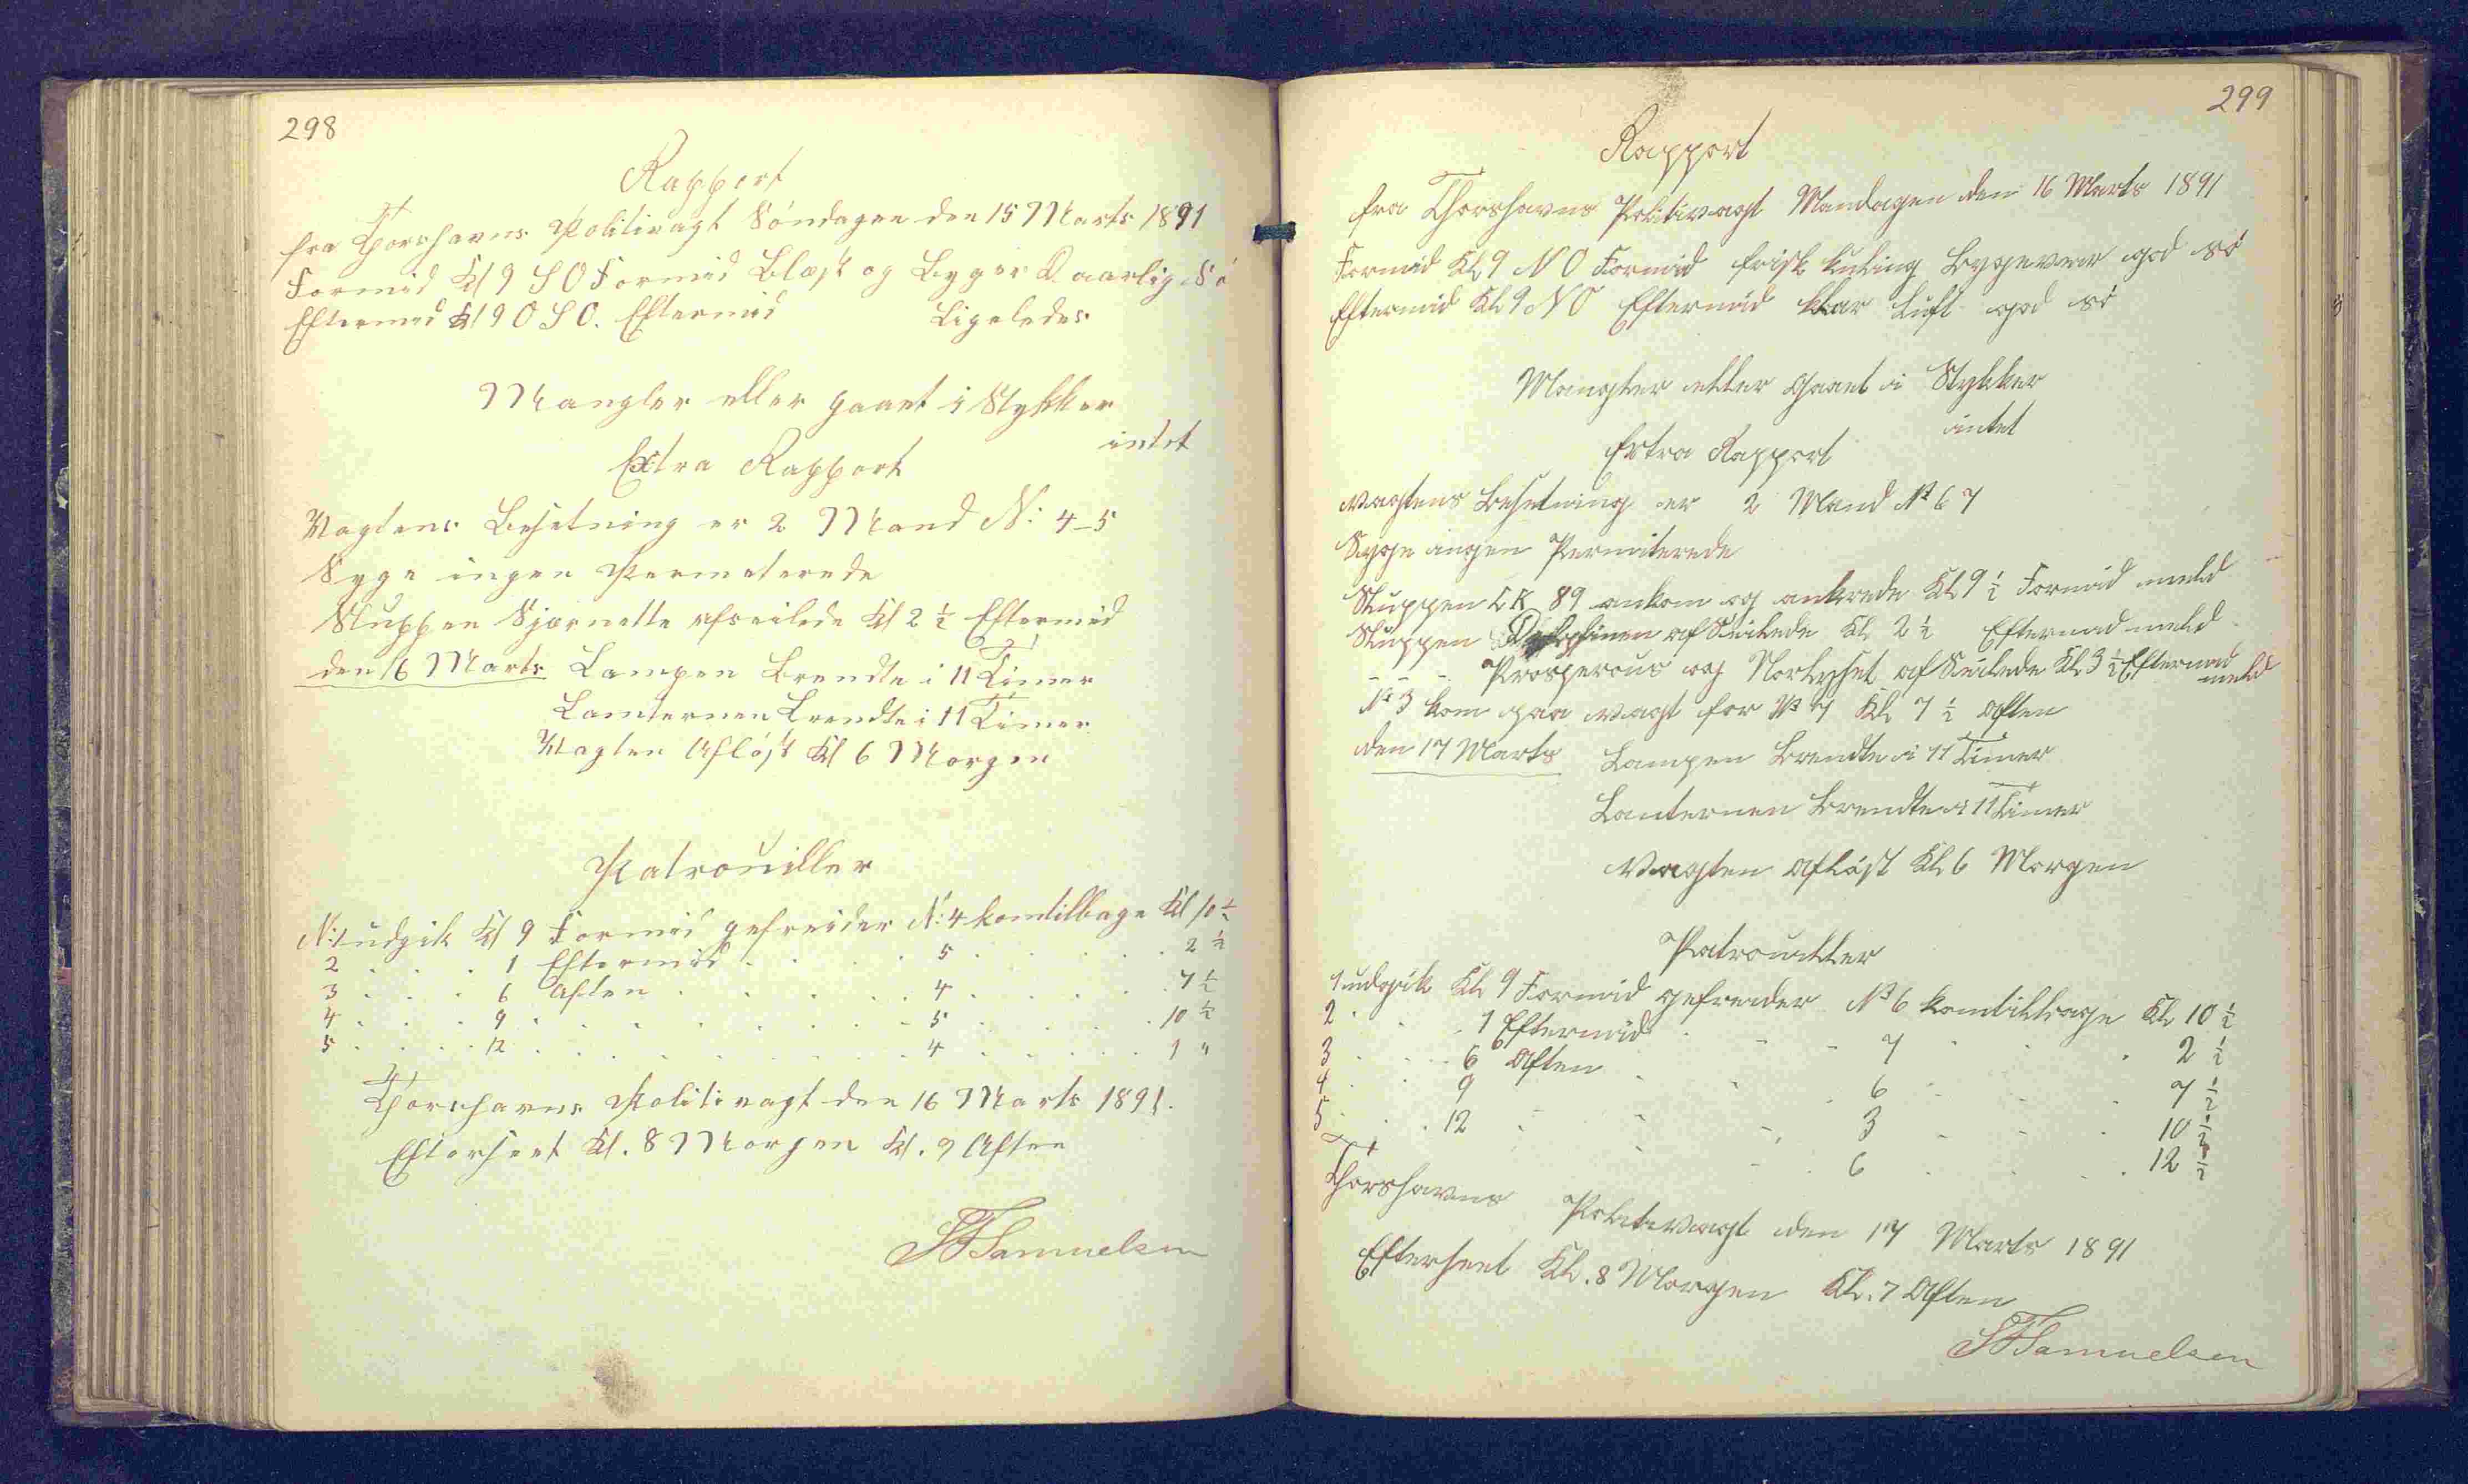 298
Rapport
fra Thorshavns Politivagt Söndagen den 15 Marts 1891
Formid Kl 9 S O Formid Blæst og Byger Daarlig Sö
Eftermid Kl 9 O S O. Eftermid Ligeledes
Mangler eller gaaet i Stykker
intet
Extra Rapport
Vagtens Besetning er 2 Mand N: 4-5
Syge ingen Permeterede
Sluppen Sjærnette afseilede Kl 2 ½ Eftermid
den 16 Marts Lampen Brendte i 11 Timer
Lanternen Brendte i 11 Timer
Vagten Aflöst Kl 6 Morgen
Patrouiller
N: 1 udgik Kl 9 Formid gefreider N: 4 kom tilbage Kl 10 ½
2 . . . 1 Eftermid . . . . 5 . . . . 2 ½
3 . . . 6 Aften . . . . . 4 . . . . 7 ½
4 . . . 9 . . . . . . . 5 . . . . 10 ½
5 . . . 12 . . . . . . . 4 . . . . 1 "
Thorshavns Politivagt den 16 Marts 1891.
Efterseet Kl. 8 Morgen Kl. 9 Aften
Samuelsen
299
Rapport
fra Thorshavns Politivagt Mandagen den 16 Marts 1891
Formid Kl 9 N O Formid frisk kuling Bygeveer god sö
Eftermid Kl 9 N O Eftermid klar Luft god sö
Mangler eller Gaaet i Stykker
intet
Extra Rapport
Vagtens Besetning er 2 Mand No 6 7
Syge ingen Permiterede
Sluppen LK 89 ankom og ankrede Kl 9 ½ Formid meld
Sluppen Delphinen af Seilede Kl 2 ½ Eftermid meld
- - - Prosperous og Norlyset af Seilede Kl 3 ½ Eftermid
meld
No 3 kom paa vagt for No 7 Kl 7 ½ Aften
den 17 Marts Lampen Brendte i 11 Timer
Lanternen Brendte i 11 Timer
Vagten Aflöst Kl 6 Morgen
Patrouiller
1 udgik Kl 9 Formid gefreider No 6 kom tilbage Kl 10 ½
2 . . . 1 Eftermid . . . 7 . . . 2 ½
3 . . . 6 Aften . . . 6 . . . 7 ½
4 . . . 9 . . . 3 . . . 10 ½
5 . . . 12 . . . 6 . . . 12 ½
Thorshavns Politivagt den 17 Marts 1891
Efterseet Kl. 8 Morgen Kl. 7 Aften
Samuelsen